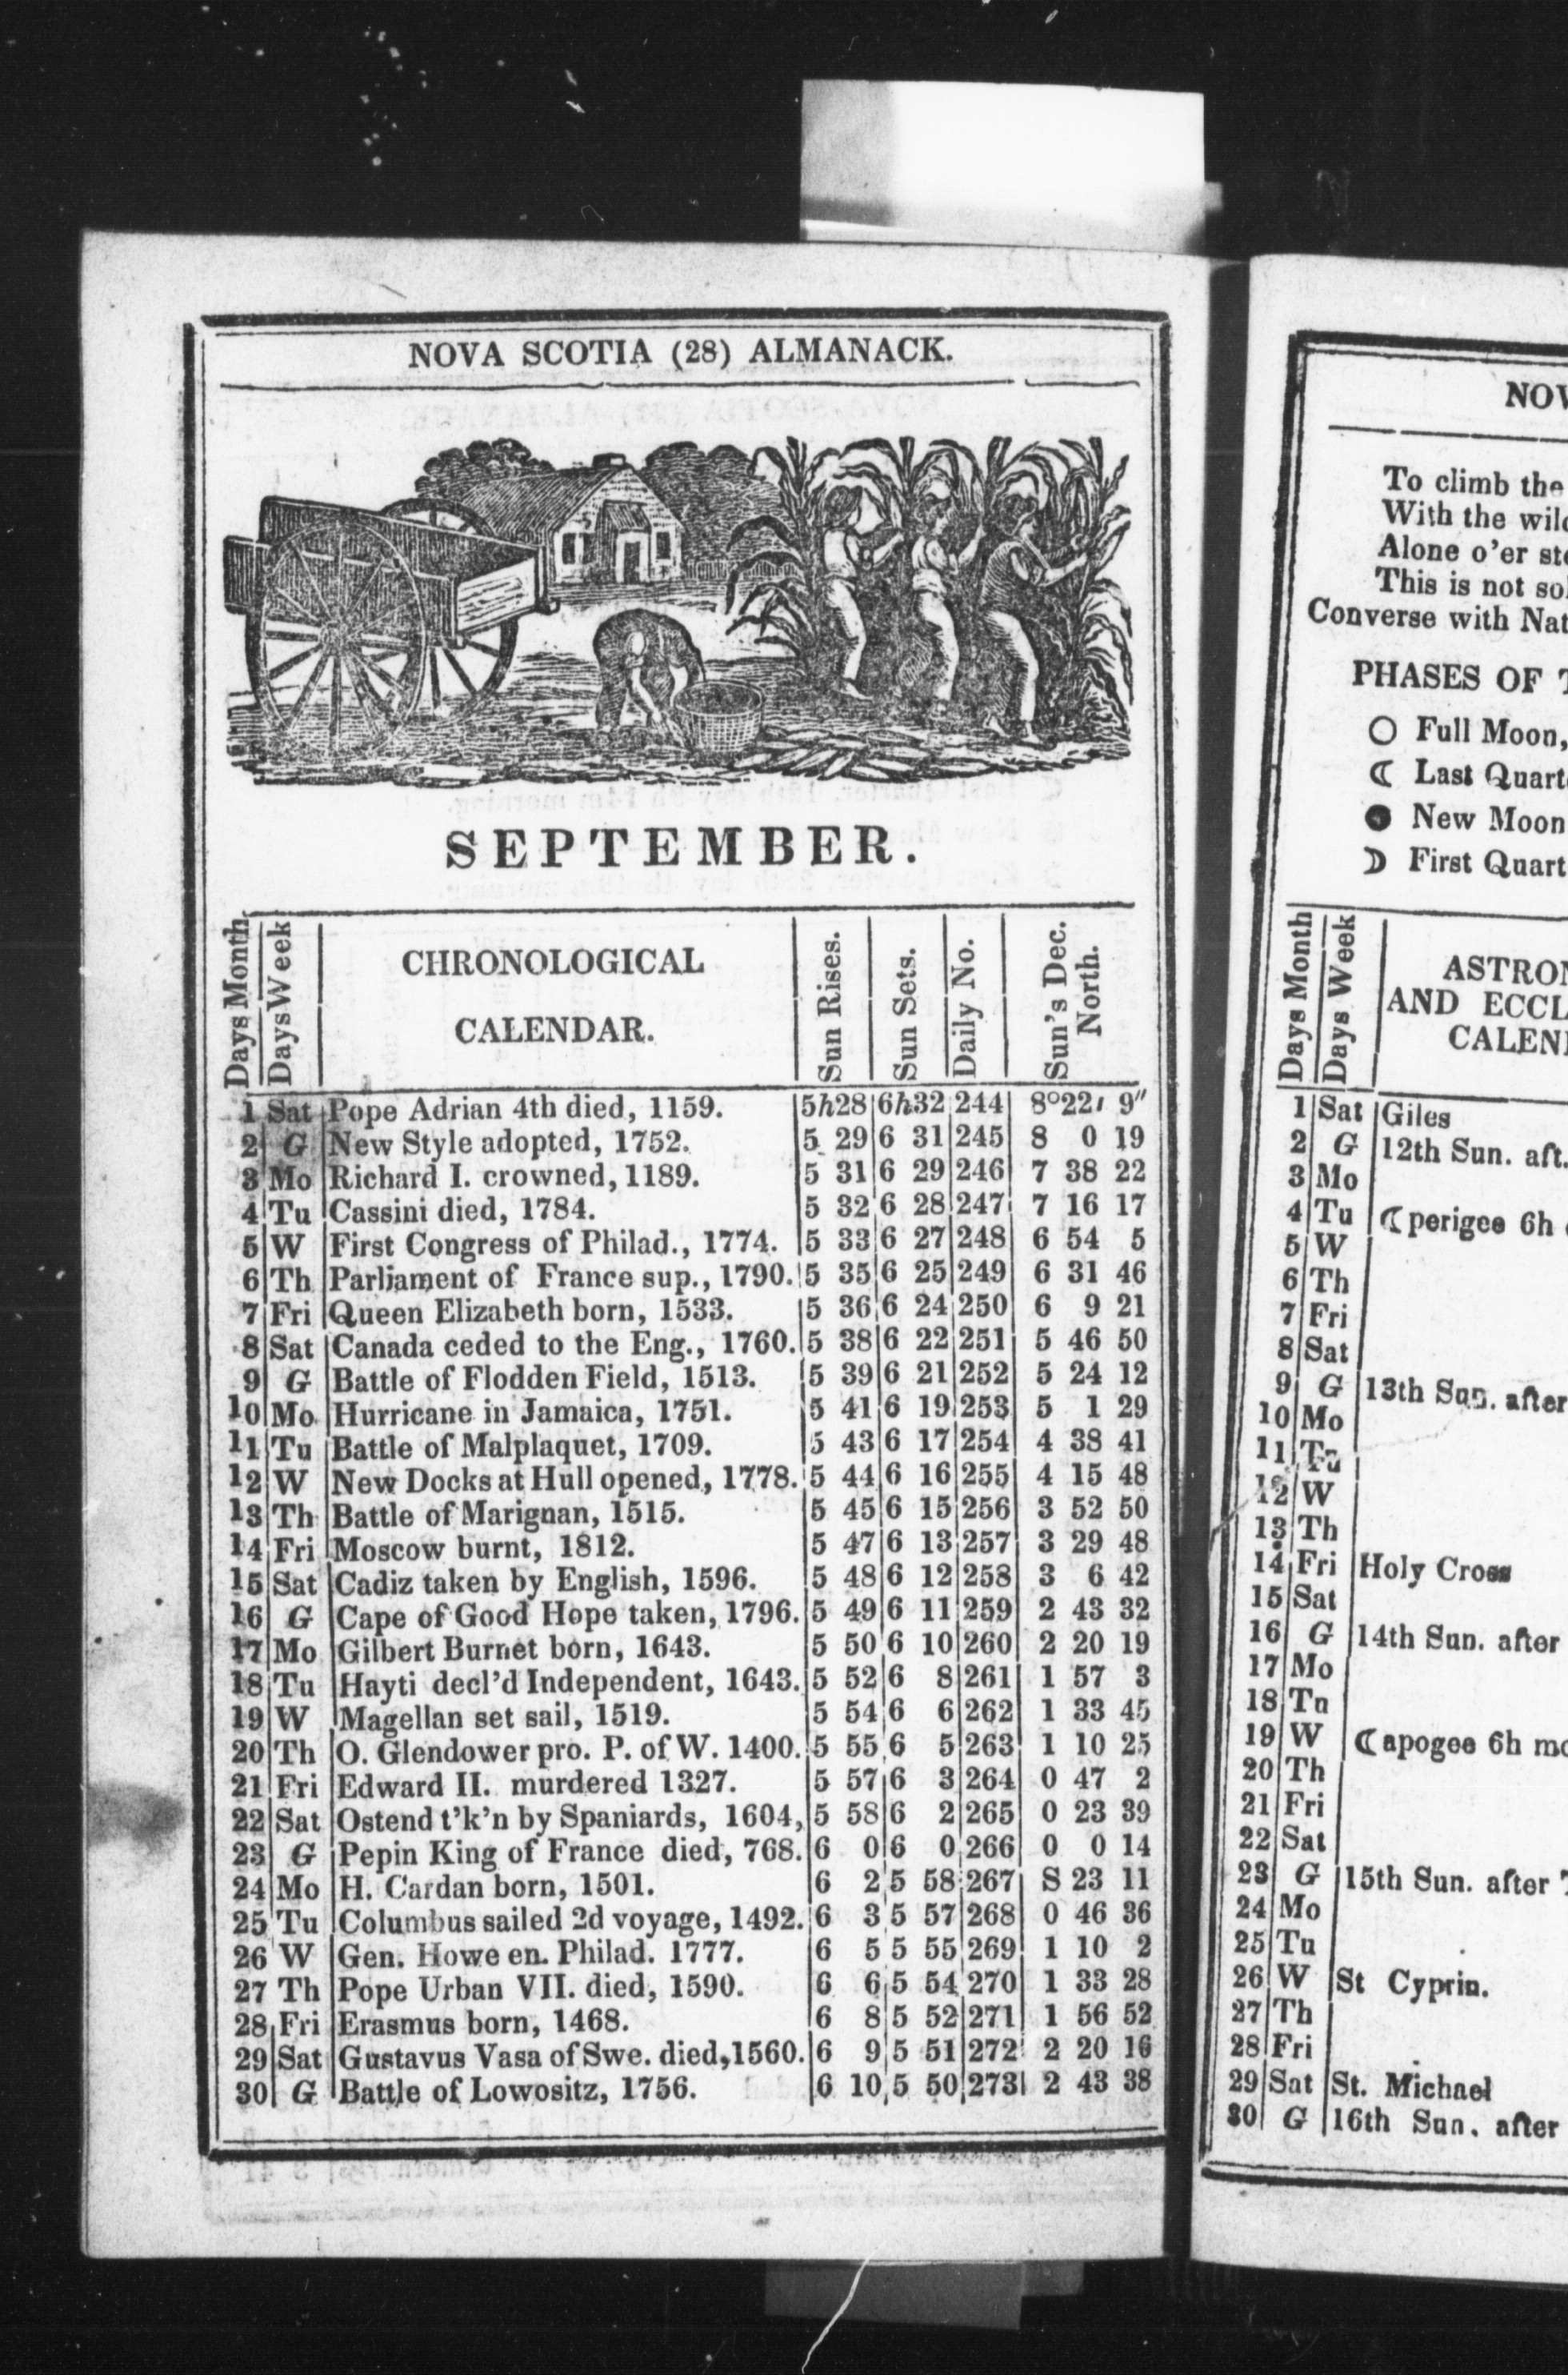 NOVA SCOTIA (28) ALMANACK.
SEPTEMBER.
Days Month
Days Week
CHRONOLOGICAL
CALENDAR.
Sun Rises.
Sun Sets.
Daily No.
Sun's Dec.
North.
1 Sat Pope Adrian 4th died, 1159. 5h28 6h32 244 8°22′ 9″
2 G New Style adopted, 1752. 5 29 6 31 245 8 0 19
3 Mo Richard I. crowned, 1189. 5 31 6 29 246 7 38 22
4 Tu Cassini died, 1784. 5 32 6 28 247 7 16 17
5 W First Congress of Philad., 1774. 5 33 6 27 248 6 54 5
6 Th Parliament of France sup., 1790. 5 35 6 25 249 6 31 46
7 Fri Queen Elizabeth born, 1533. 5 36 6 24 250 6 9 21
8 Sat Canada ceded to the Eng., 1760. 5 38 6 22 251 5 46 50
9 G Battle of Flodden Field, 1513. 5 39 6 21 252 5 24 12
10 Mo Hurricane in Jamaica, 1751. 5 41 6 19 253 5 1 29
11 Tu Battle of Malplaquet, 1709. 5 43 6 17 254 4 38 41
12 W New Docks at Hull opened, 1778. 5 44 6 16 255 4 15 48
13 Th Battle of Marignan, 1515. 5 45 6 15 256 3 52 50
14 Fri Moscow burnt, 1812. 5 47 6 13 257 3 29 48
15 Sat Cadiz taken by English, 1596. 5 48 6 12 258 3 6 42
16 G Cape of Good Hope taken, 1796. 5 49 6 11 259 2 43 32
17 Mo Gilbert Burnet born, 1643. 5 50 6 10 260 2 20 19
18 Tu Hayti decl'd Independent, 1643. 5 52 6 8 261 1 57 3
19 W Magellan set sail, 1519. 5 54 6 6 262 1 33 45
20 Th O. Glendower pro. P. of W. 1400. 5 55 6 5 263 1 10 25
21 Fri Edward II. murdered 1327. 5 57 6 3 264 0 47 2
22 Sat Ostend t'k'n by Spaniards, 1604, 5 58 6 2 265 0 23 39
23 G Pepin King of France died, 768. 6 0 6 0 266 0 0 14
24 Mo H. Cardan born, 1501. 6 2 5 58 267 S 23 11
25 Tu Columbus sailed 2d voyage, 1492. 6 3 5 57 268 0 46 36
26 W Gen. Howe en. Philad. 1777. 6 5 5 55 269 1 10 2
27 Th Pope Urban VII. died, 1590. 6 6 5 54 270 1 33 28
28 Fri Erasmus born, 1468. 6 8 5 52 271 1 56 52
29 Sat Gustavus Vasa of Swe. died, 1560. 6 9 5 51 272 2 20 16
30 G Battle of Lowositz, 1756. 6 10 5 50 273 2 43 38
NOV
To climb the
With the wild
Alone o'er ste
This is not sol
Converse with Nat
PHASES OF T
○ Full Moon,
☾ Last Quart
● New Moon
☽ First Quart
Days Month
Days Week
ASTRON
AND ECCL
CALEN
1 Sat Giles
2 G 12th Sun. aft.
3 Mo
4 Tu ☾ perigee 6h
5 W
6 Th
7 Fri
8 Sat
9 G 13th Sun. after
10 Mo
11 Tu
12 W
13 Th
14 Fri Holy Cross
15 Sat
16 G 14th Sun. after
17 Mo
18 Tu
19 W ☾ apogee 6h mo
20 Th
21 Fri
22 Sat
23 G 15th Sun. after T
24 Mo
25 Tu
26 W St Cyprin.
27 Th
28 Fri
29 Sat St. Michael
30 G 16th Sun. after